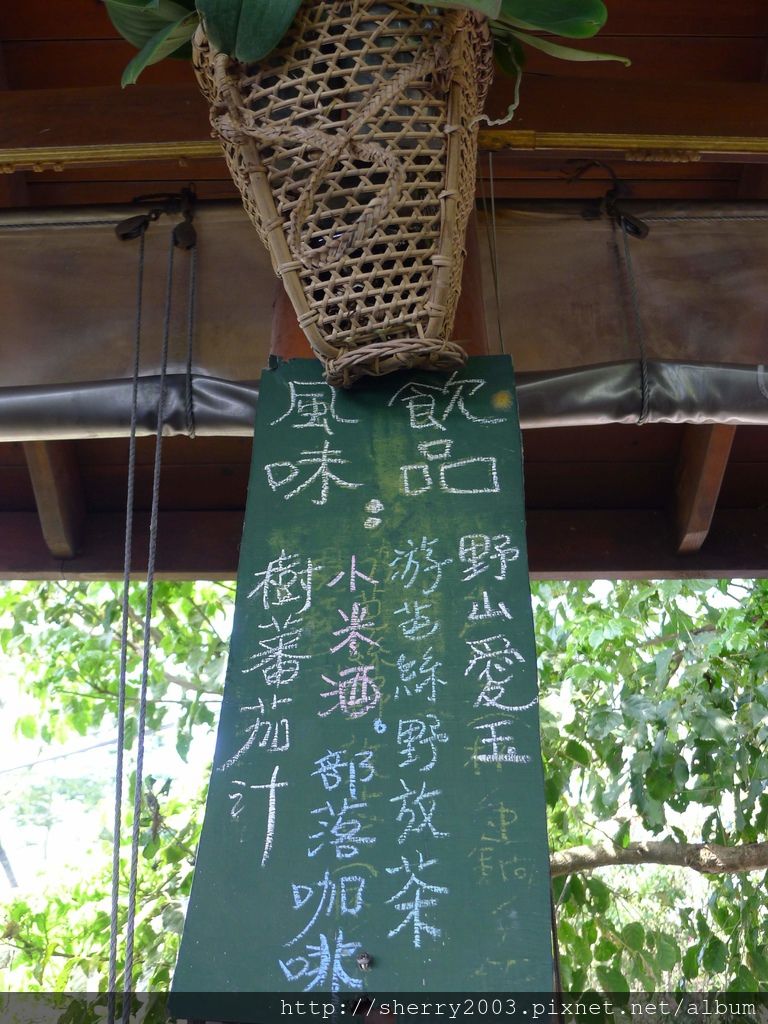 風味飲品:
野山愛玉
游芭絲野放茶
小米酒。部落咖啡
樹蕃茄汁
http://sherry2003.pixnet.net/album